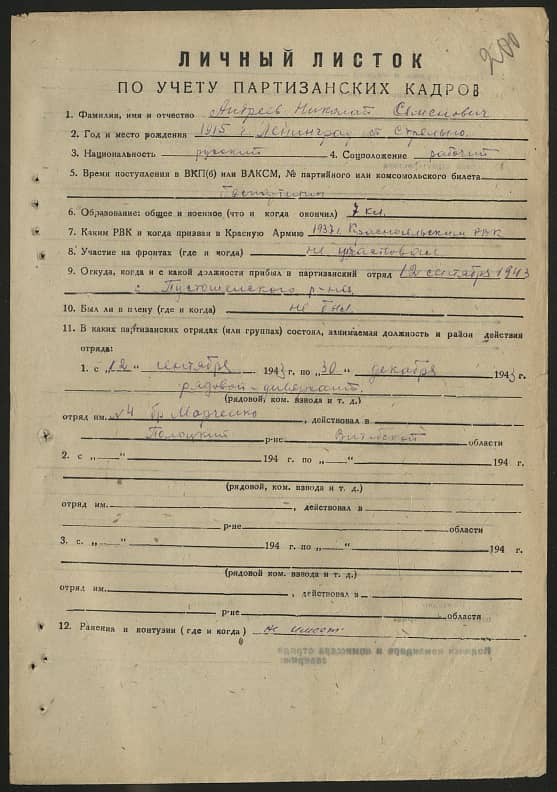 200
ЛИЧНЫЙ ЛИСТОК
ПО УЧЕТУ ПАРТИЗАНСКИХ КАДРОВ
1. Фамилия, имя и отчество Андреев Николай Семенович
2. Год и место рождения 1915 г. Ленинград ст Стрельно.
3. Национальность русский 4. Соцположение рабочий
5. Время поступления в ВКП(б) или ВЛКСМ, № партийного или комсомольского билета
6. Образование: общее и военное (что и когда окончил) 7 кл.
7. Каким РВК и когда призван в Красную Армию 1937 г. Красносельским РВК
8. Участие на фронтах (где и когда) не участвовал
9. Откуда, когда и с какой должности прибыл в партизанский отряд 12 сентября 1943
с Пустошенского р-на
10. Был ли в плену (где и когда) не был.
11. В каких партизанских отрядах (или группах) состоял, занимаемая должность и район действия
отряда:
1. с „12“ сентября 1943 г по „30“ декабря 1943 г.
рядовой-диверсант.
(рядовой, ком. взвода и т. д.)
отряд им. №4 бр Марченко, действовал в
Полоцкий р-не Витебской области
2. с „—“ 194 г. по „—“ 194 г.
(рядовой, ком. взвода и т. д.)
отряд им. , действовал в
р-не области
3. с „—“ 194 г по „—“ 194 г.
(рядовой ком. взвода и т. д.)
отряд им. , действовал в
р-не области
12. Ранения и контузии (где и когда) не имеет
Подписи командира и комиссара отряда
заверяю: